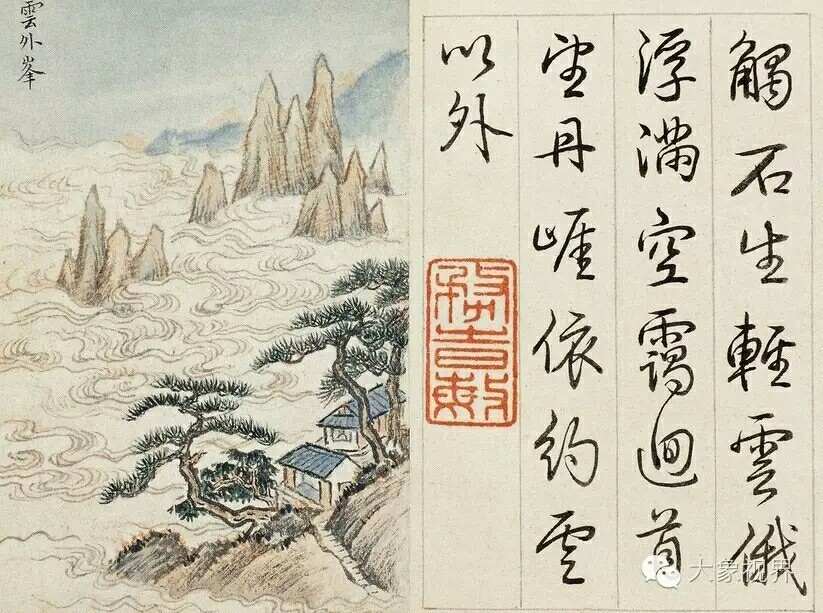 觸石生輕雲俄
浮滿空靄迴首
望丹崕依約雲
以外
雲外峯
大象视界